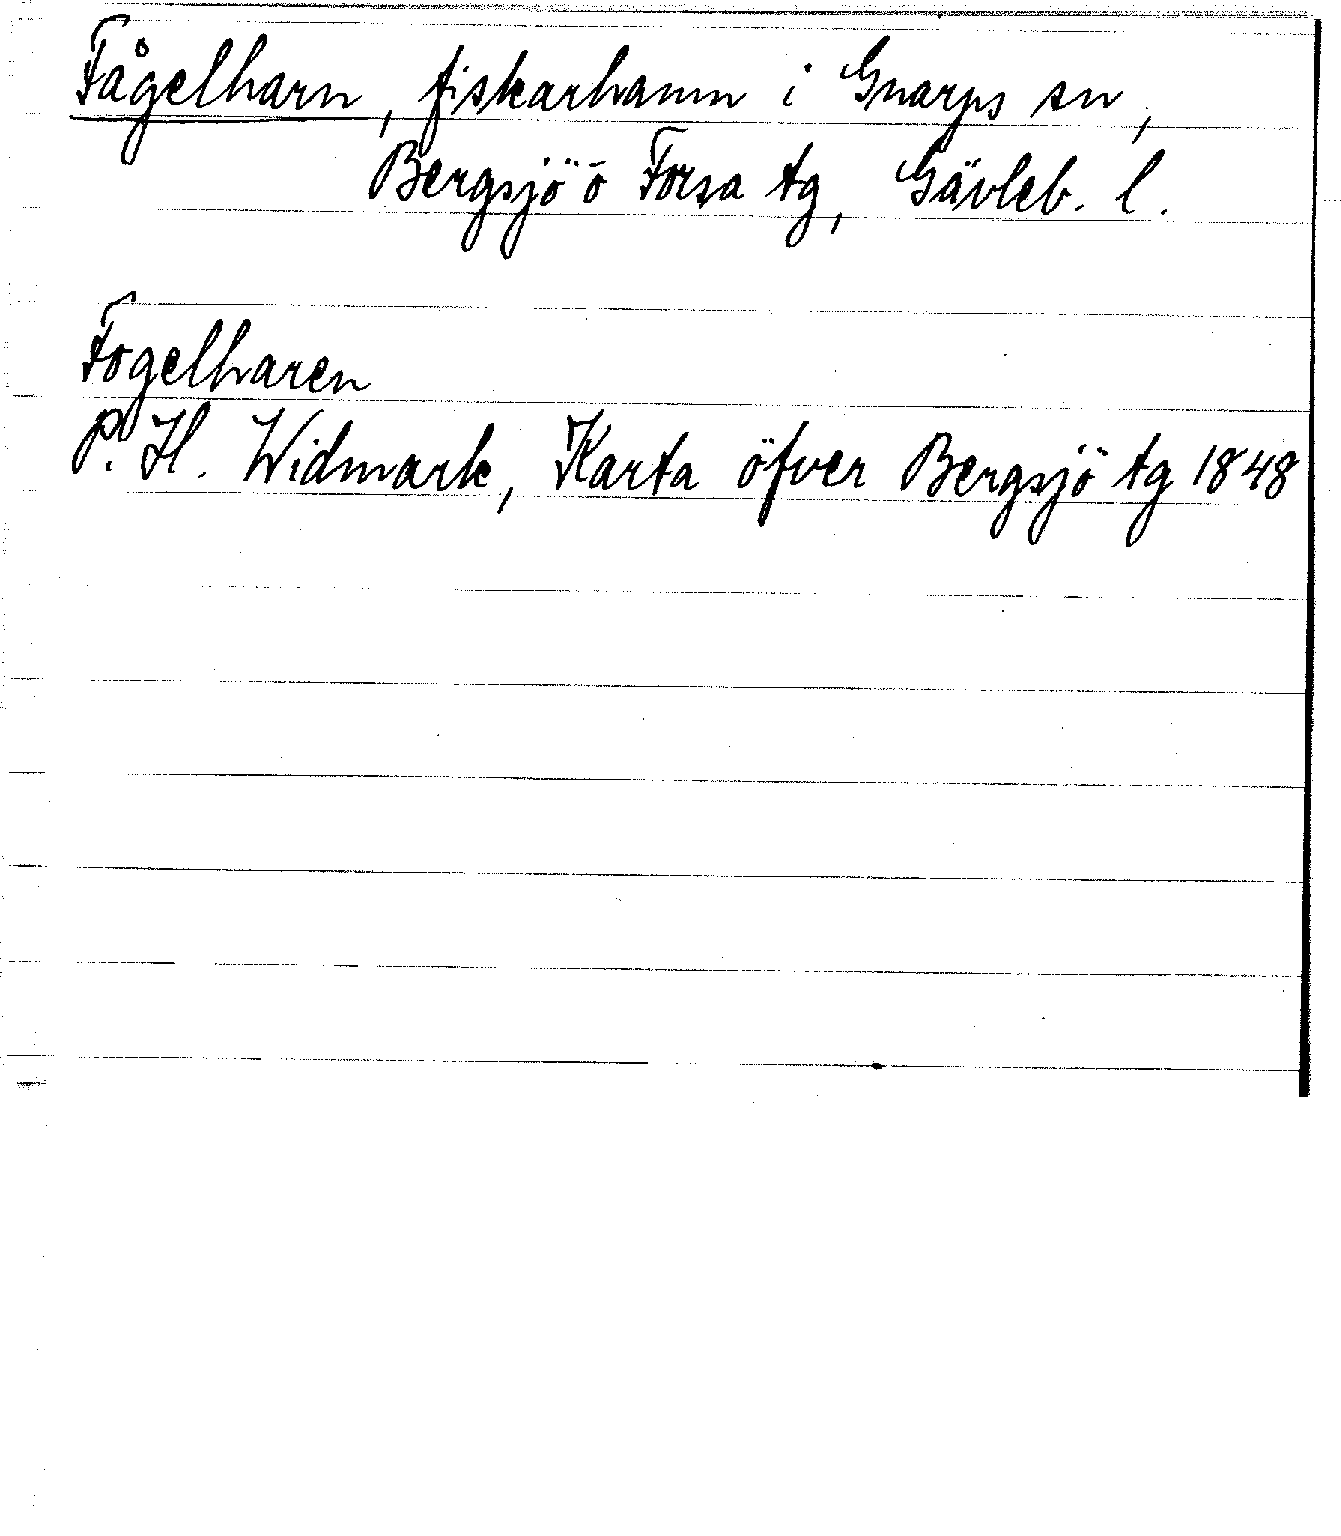 Fågelharn, fiskarhamn i Gnarps sn,
Bergsjö o Forsa tg, Gävleb. l.
Fogelharen
P. H. Widmark, Karta öfver Bergsjö tg 1848